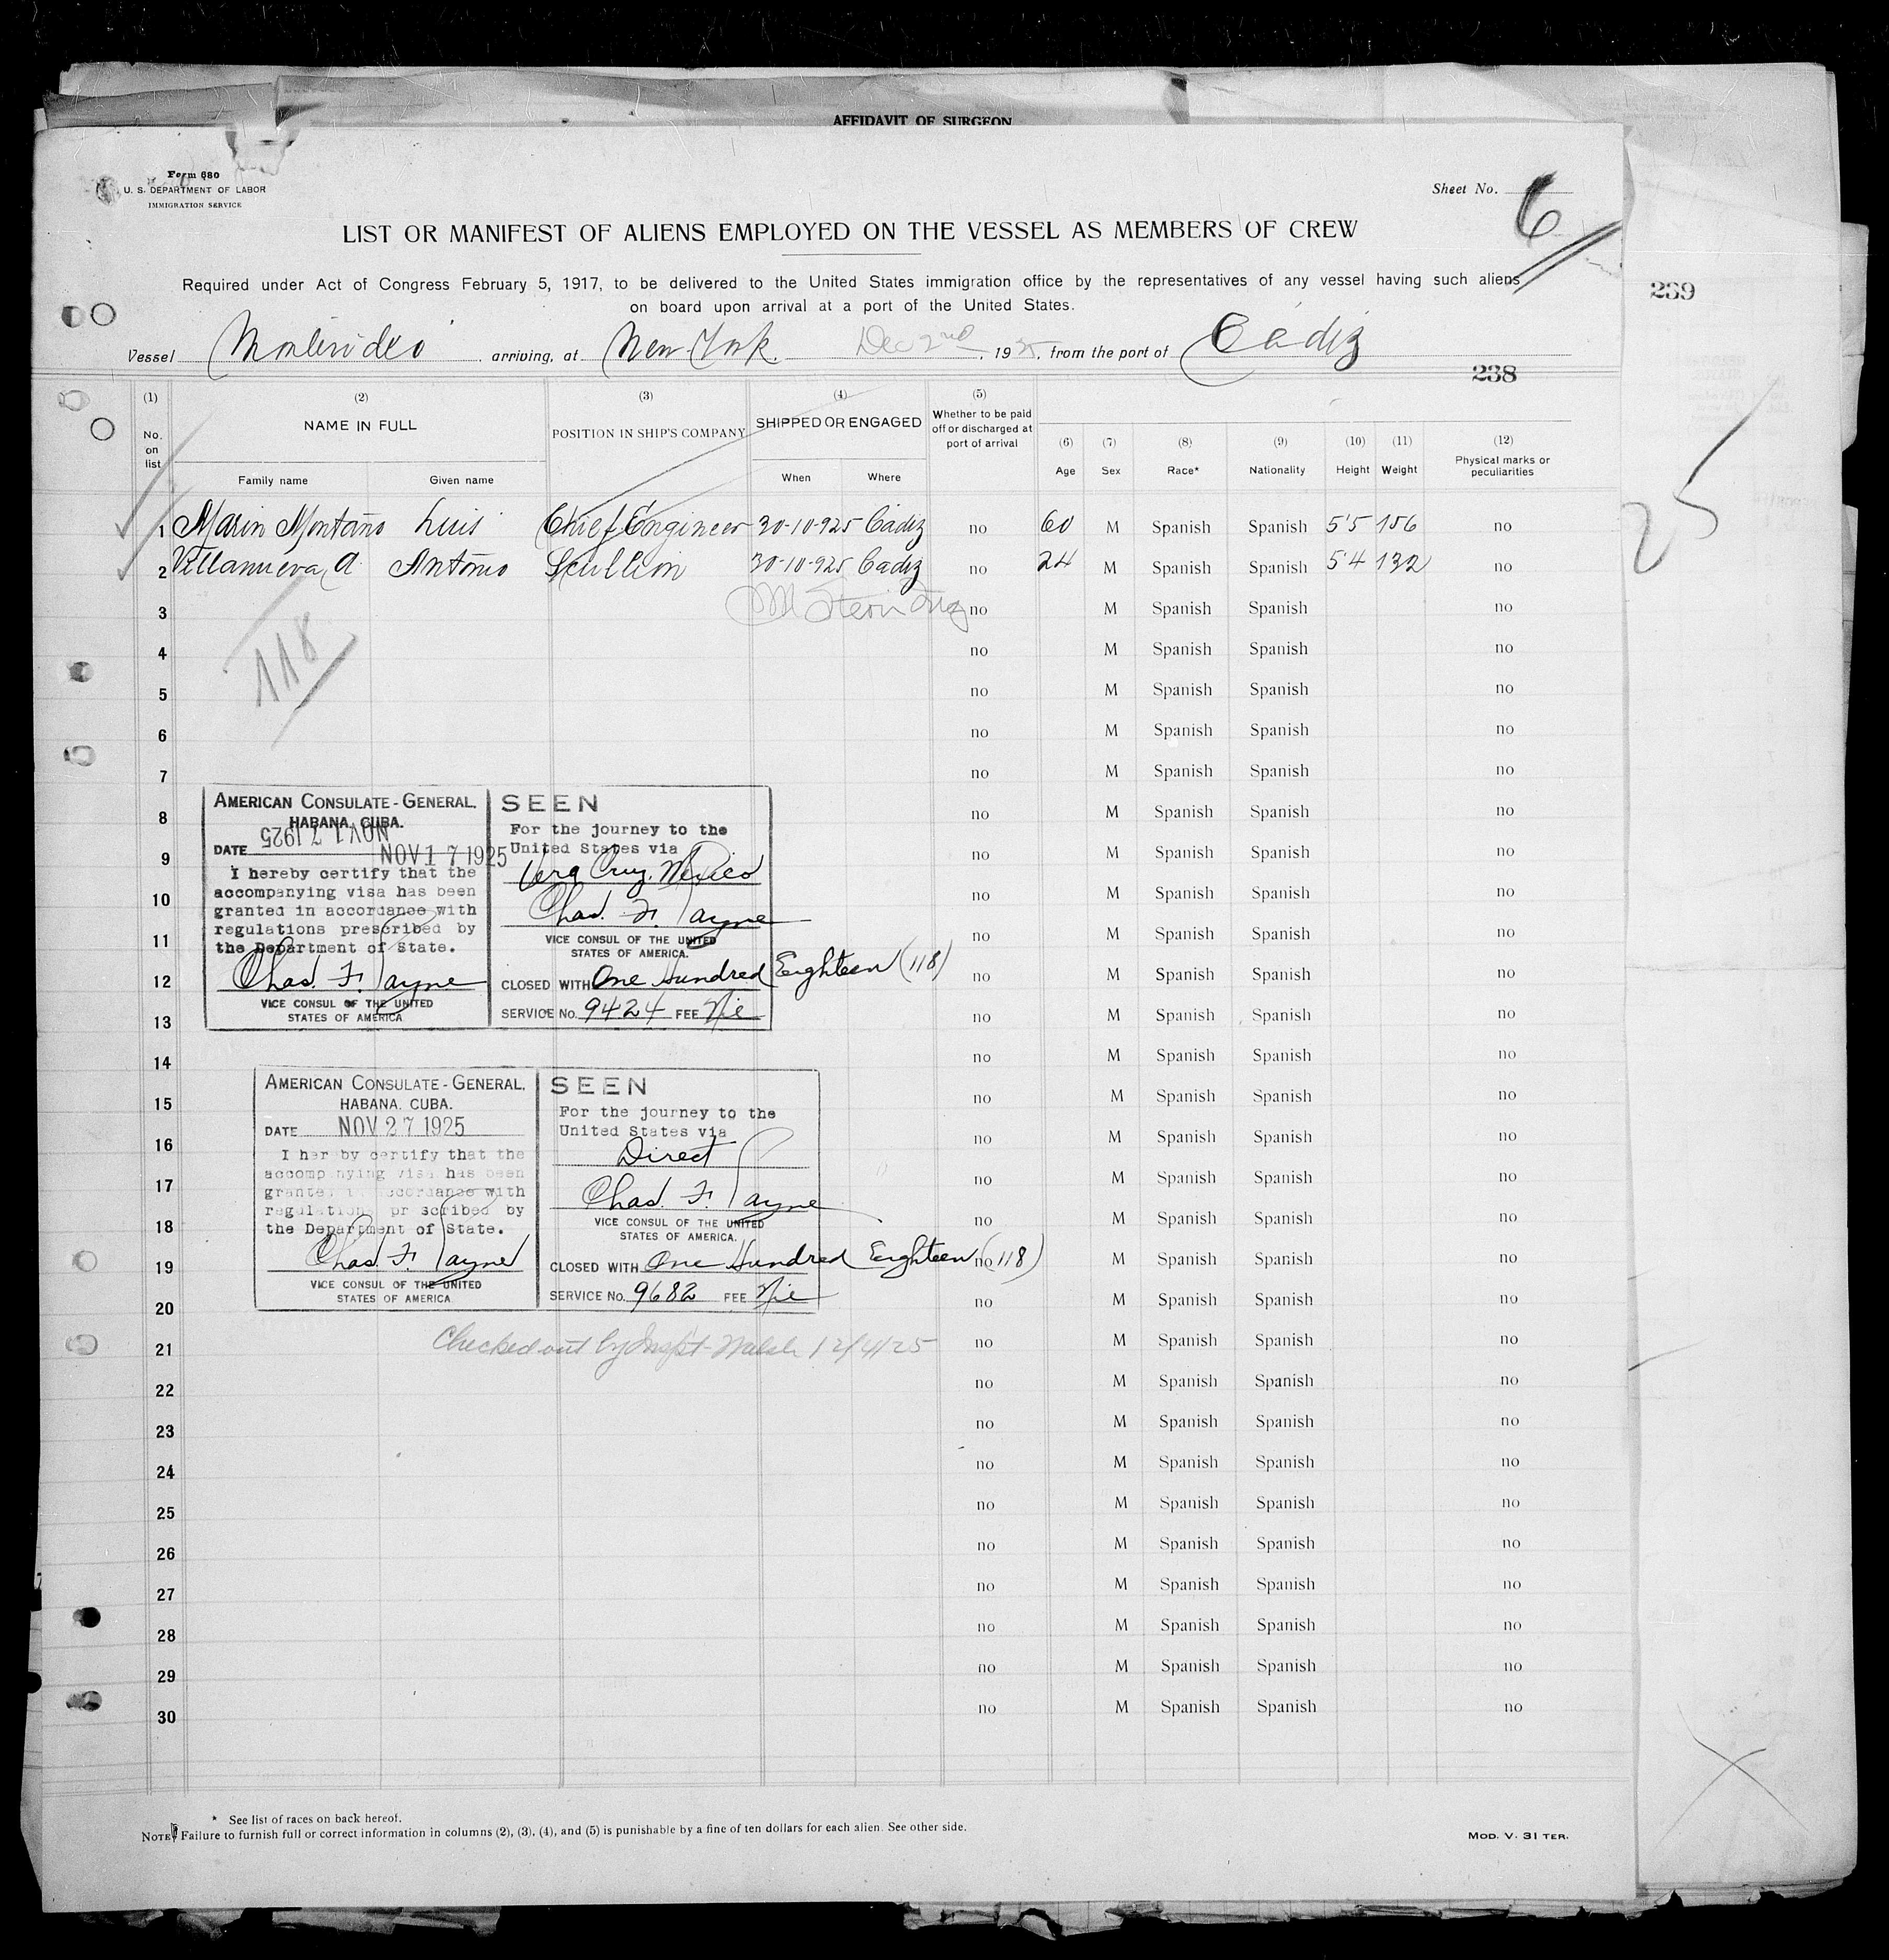 AFFIDAVIT OF SURGEON
Form 680
U. S. DEPARTMENT OF LABOR
IMMIGRATION SERVICE
Sheet No. 6
LIST OR MANIFEST OF ALIENS EMPLOYED ON THE VESSEL AS MEMBERS OF CREW
Required under Act of Congress February 5, 1917, to be delivered to the United States immigration office by the representatives of any vessel having such aliens
on board upon arrival at a port of the United States.
239
Vessel Montevideo arriving, at New-York. Dec 2nd, 1925, from the port of Cádiz
238
(1) (2) (3) (4) (5)
No. on list NAME IN FULL POSITION IN SHIP'S COMPANY SHIPPED OR ENGAGED Whether to be paid off or discharged at port of arrival (6) Age (7) Sex (8) Race* (9) Nationality (10) Height (11) Weight (12) Physical marks or peculiarities
Family name Given name When Where
1 Marin Montaño Luis Chief Engineer 30-10-925 Cádiz no 60 M Spanish Spanish 5'5 156 no
2 Villanueva, A. Antonio Scullion 30-10-925 Cadiz no 24 M Spanish Spanish 5'4 132 no
25
3 no M Spanish Spanish no
118
4 no M Spanish Spanish no
5 no M Spanish Spanish no
6 no M Spanish Spanish no
7 no M Spanish Spanish no
8 no M Spanish Spanish no
9 no M Spanish Spanish no
10 no M Spanish Spanish no
11 no M Spanish Spanish no
12 no M Spanish Spanish no
13 no M Spanish Spanish no
AMERICAN CONSULATE-GENERAL,
HABANA, CUBA.
NOV 17 1925
DATE NOV 17 1925
I hereby certify that the
accompanying visa has been
granted in accordance with
regulations prescribed by
the Department of State.
Chas. F. Payne
VICE CONSUL OF THE UNITED
STATES OF AMERICA
SEEN
For the journey to the
United States via
Vera Cruz, Mexico
Chas. F. Payne
VICE CONSUL OF THE UNITED
STATES OF AMERICA.
CLOSED WITH One Hundred Eighteen (118)
SERVICE No. 9424 FEE Nil
14 no M Spanish Spanish no
15 no M Spanish Spanish no
16 no M Spanish Spanish no
17 no M Spanish Spanish no
18 no M Spanish Spanish no
19 no M Spanish Spanish no
20 no M Spanish Spanish no
AMERICAN CONSULATE-GENERAL,
HABANA. CUBA.
DATE NOV 27 1925
I hereby certify that the
accompanying visa has been
granted in accordance with
regulations prescribed by
the Department of State.
Chas. F. Payne
VICE CONSUL OF THE UNITED
STATES OF AMERICA
SEEN
For the journey to the
United States via
Direct
Chas. F. Payne
VICE CONSUL OF THE UNITED
STATES OF AMERICA.
CLOSED WITH One Hundred Eighteen (118)
SERVICE No. 9682 FEE Nil
21 Checked out by Inspt. Walsh 12/4/25 no M Spanish Spanish no
22 no M Spanish Spanish no
23 no M Spanish Spanish no
24 no M Spanish Spanish no
25 no M Spanish Spanish no
26 no M Spanish Spanish no
27 no M Spanish Spanish no
28 no M Spanish Spanish no
29 no M Spanish Spanish no
30 no M Spanish Spanish no
* See list of races on back hereof.
NOTE Failure to furnish full or correct information in columns (2), (3), (4), and (5) is punishable by a fine of ten dollars for each alien. See other side.
MOD. V. 31 TER.